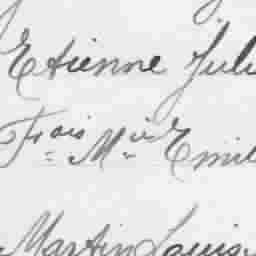 Etienne Jule
Frois Mie Emil
Martin Louis